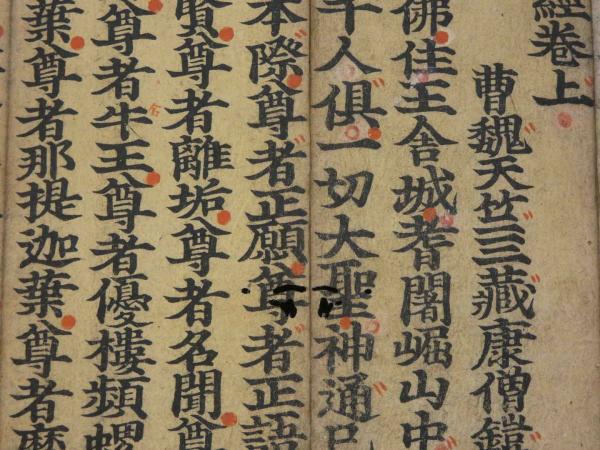 經卷上
曹魏天竺三藏康僧鎧
佛住王舍城耆闍崛山中
千人俱一切大聖神通已
本際尊者正願尊者正語
賢尊者離垢尊者名聞尊
尊者牛王尊者優樓頻螺
葉尊者那提迦葉尊者摩